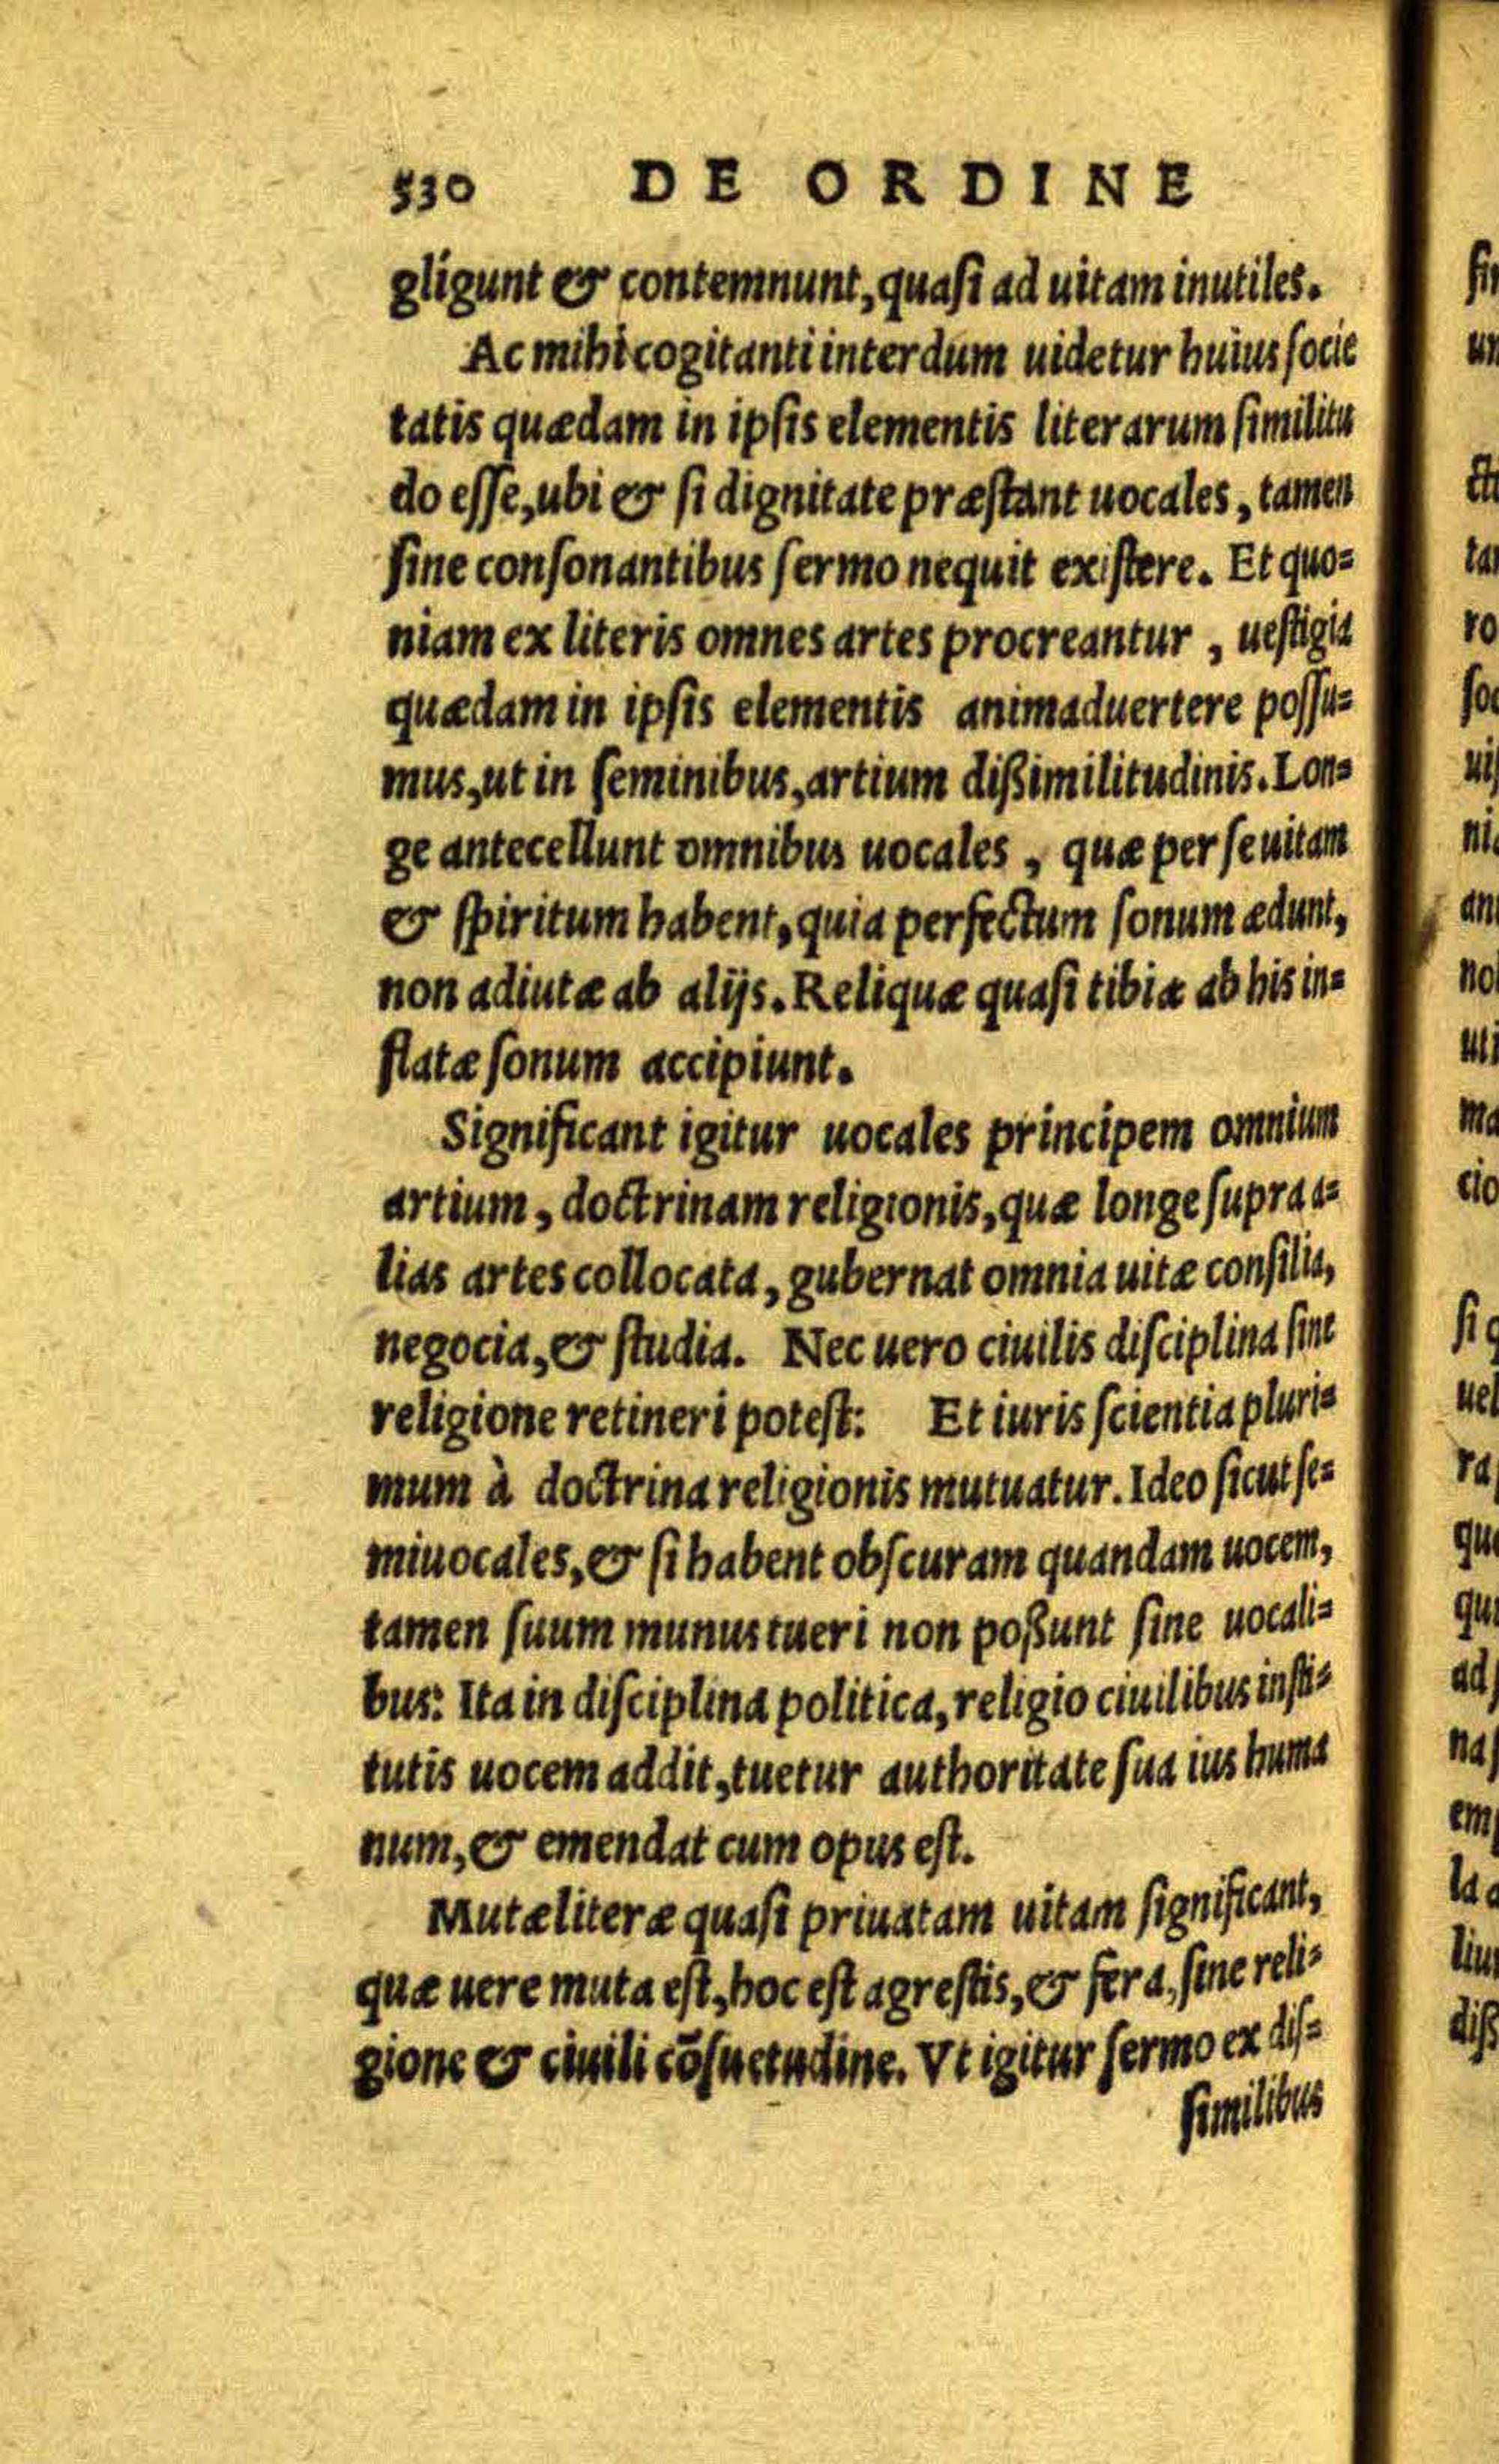 530 DE ORDINE
gligunt & contemnunt, quaſi ad uitam inutiles.
Ac mihi cogitanti interdum uidetur huius ſocie
tatis quædam in ipſis elementis literarum ſimilitu
do eſſe, ubi & ſi dignitate præſtant uocales, tamen
ſine conſonantibus ſermo nequit exiſtere. Et quo=
niam ex literis omnes artes procreantur, ueſtigia
quædam in ipſis elementis animaduertere poſſu=
mus, ut in ſeminibus, artium dißimilitudinis. Lon=
ge antecellunt omnibus uocales, quæ per ſe uitam
& ſpiritum habent, quia perfectum ſonum ædunt,
non adiutæ ab alijs. Reliquæ quaſi tibiæ ab his in=
flatæ ſonum accipiunt.
Significant igitur uocales principem omnium
artium, doctrinam religionis, quæ longe ſupra a=
lias artes collocata, gubernat omnia uitæ conſilia,
negocia, & ſtudia. Nec uero ciuilis diſciplina ſine
religione retineri poteſt: Et iuris ſcientia pluri=
mum à doctrina religionis mutuatur. Ideo ſicut ſe=
miuocales, & ſi habent obſcuram quandam uocem,
tamen ſuum munus tueri non poßunt ſine uocali=
bus: Ita in diſciplina politica, religio ciuilibus inſti=
tutis uocem addit, tuetur authoritate ſua ius huma
num, & emendat cum opus eſt.
Mutæ literæ quaſi priuatam uitam ſignificant,
quæ uere muta eſt, hoc eſt agreſtis, & fera, ſine reli=
gione & ciuili cõſuetudine. Vt igitur ſermo ex diſ=
ſimilibus